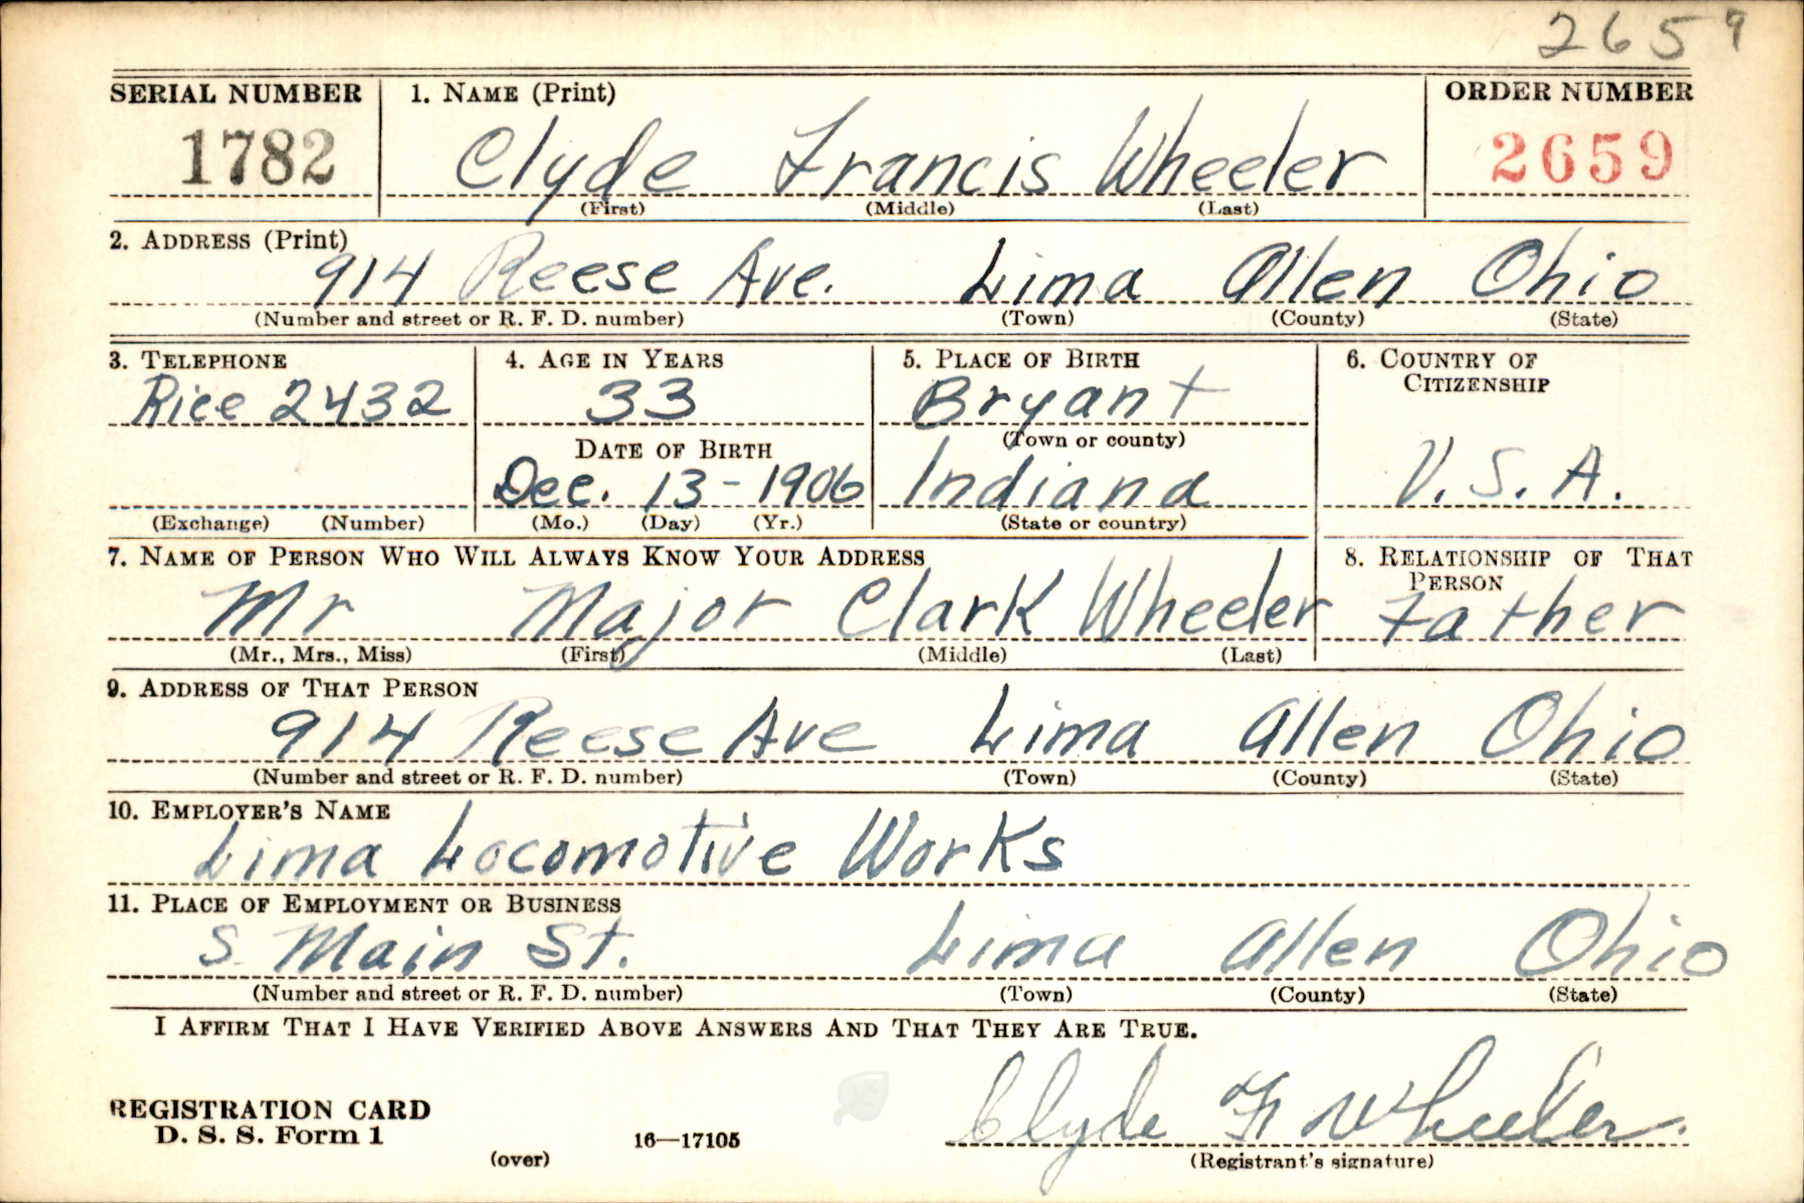 2659
SERIAL NUMBER 1. NAME (Print) ORDER NUMBER
1782 Clyde Francis Wheeler 2659
(First) (Middle) (Last)
2. ADDRESS (Print)
914 Reese Ave. Lima Allen Ohio
(Number and street or R. F. D. number) (Town) (County) (State)
3. TELEPHONE 4. AGE IN YEARS 5. PLACE OF BIRTH 6. COUNTRY OF
CITIZENSHIP
Rice 2432 33 Bryant
(Town or county)
DATE OF BIRTH
Dec. 13-1906 Indiana U.S.A.
(Exchange) (Number) (Mo.) (Day) (Yr.) (State or country)
7. NAME OF PERSON WHO WILL ALWAYS KNOW YOUR ADDRESS 8. RELATIONSHIP OF THAT
PERSON
Mr Major Clark Wheeler Father
(Mr., Mrs., Miss) (First) (Middle) (Last)
9. ADDRESS OF THAT PERSON
914 Reese Ave Lima Allen Ohio
(Number and street or R. F. D. number) (Town) (County) (State)
10. EMPLOYER'S NAME
Lima Locomotive Works
11. PLACE OF EMPLOYMENT OR BUSINESS
S. Main St. Lima Allen Ohio
(Number and street or R. F. D. number) (Town) (County) (State)
I AFFIRM THAT I HAVE VERIFIED ABOVE ANSWERS AND THAT THEY ARE TRUE.
REGISTRATION CARD
D. S. S. Form 1 16—17105 Clyde F. Wheeler.
(over) (Registrant's signature)